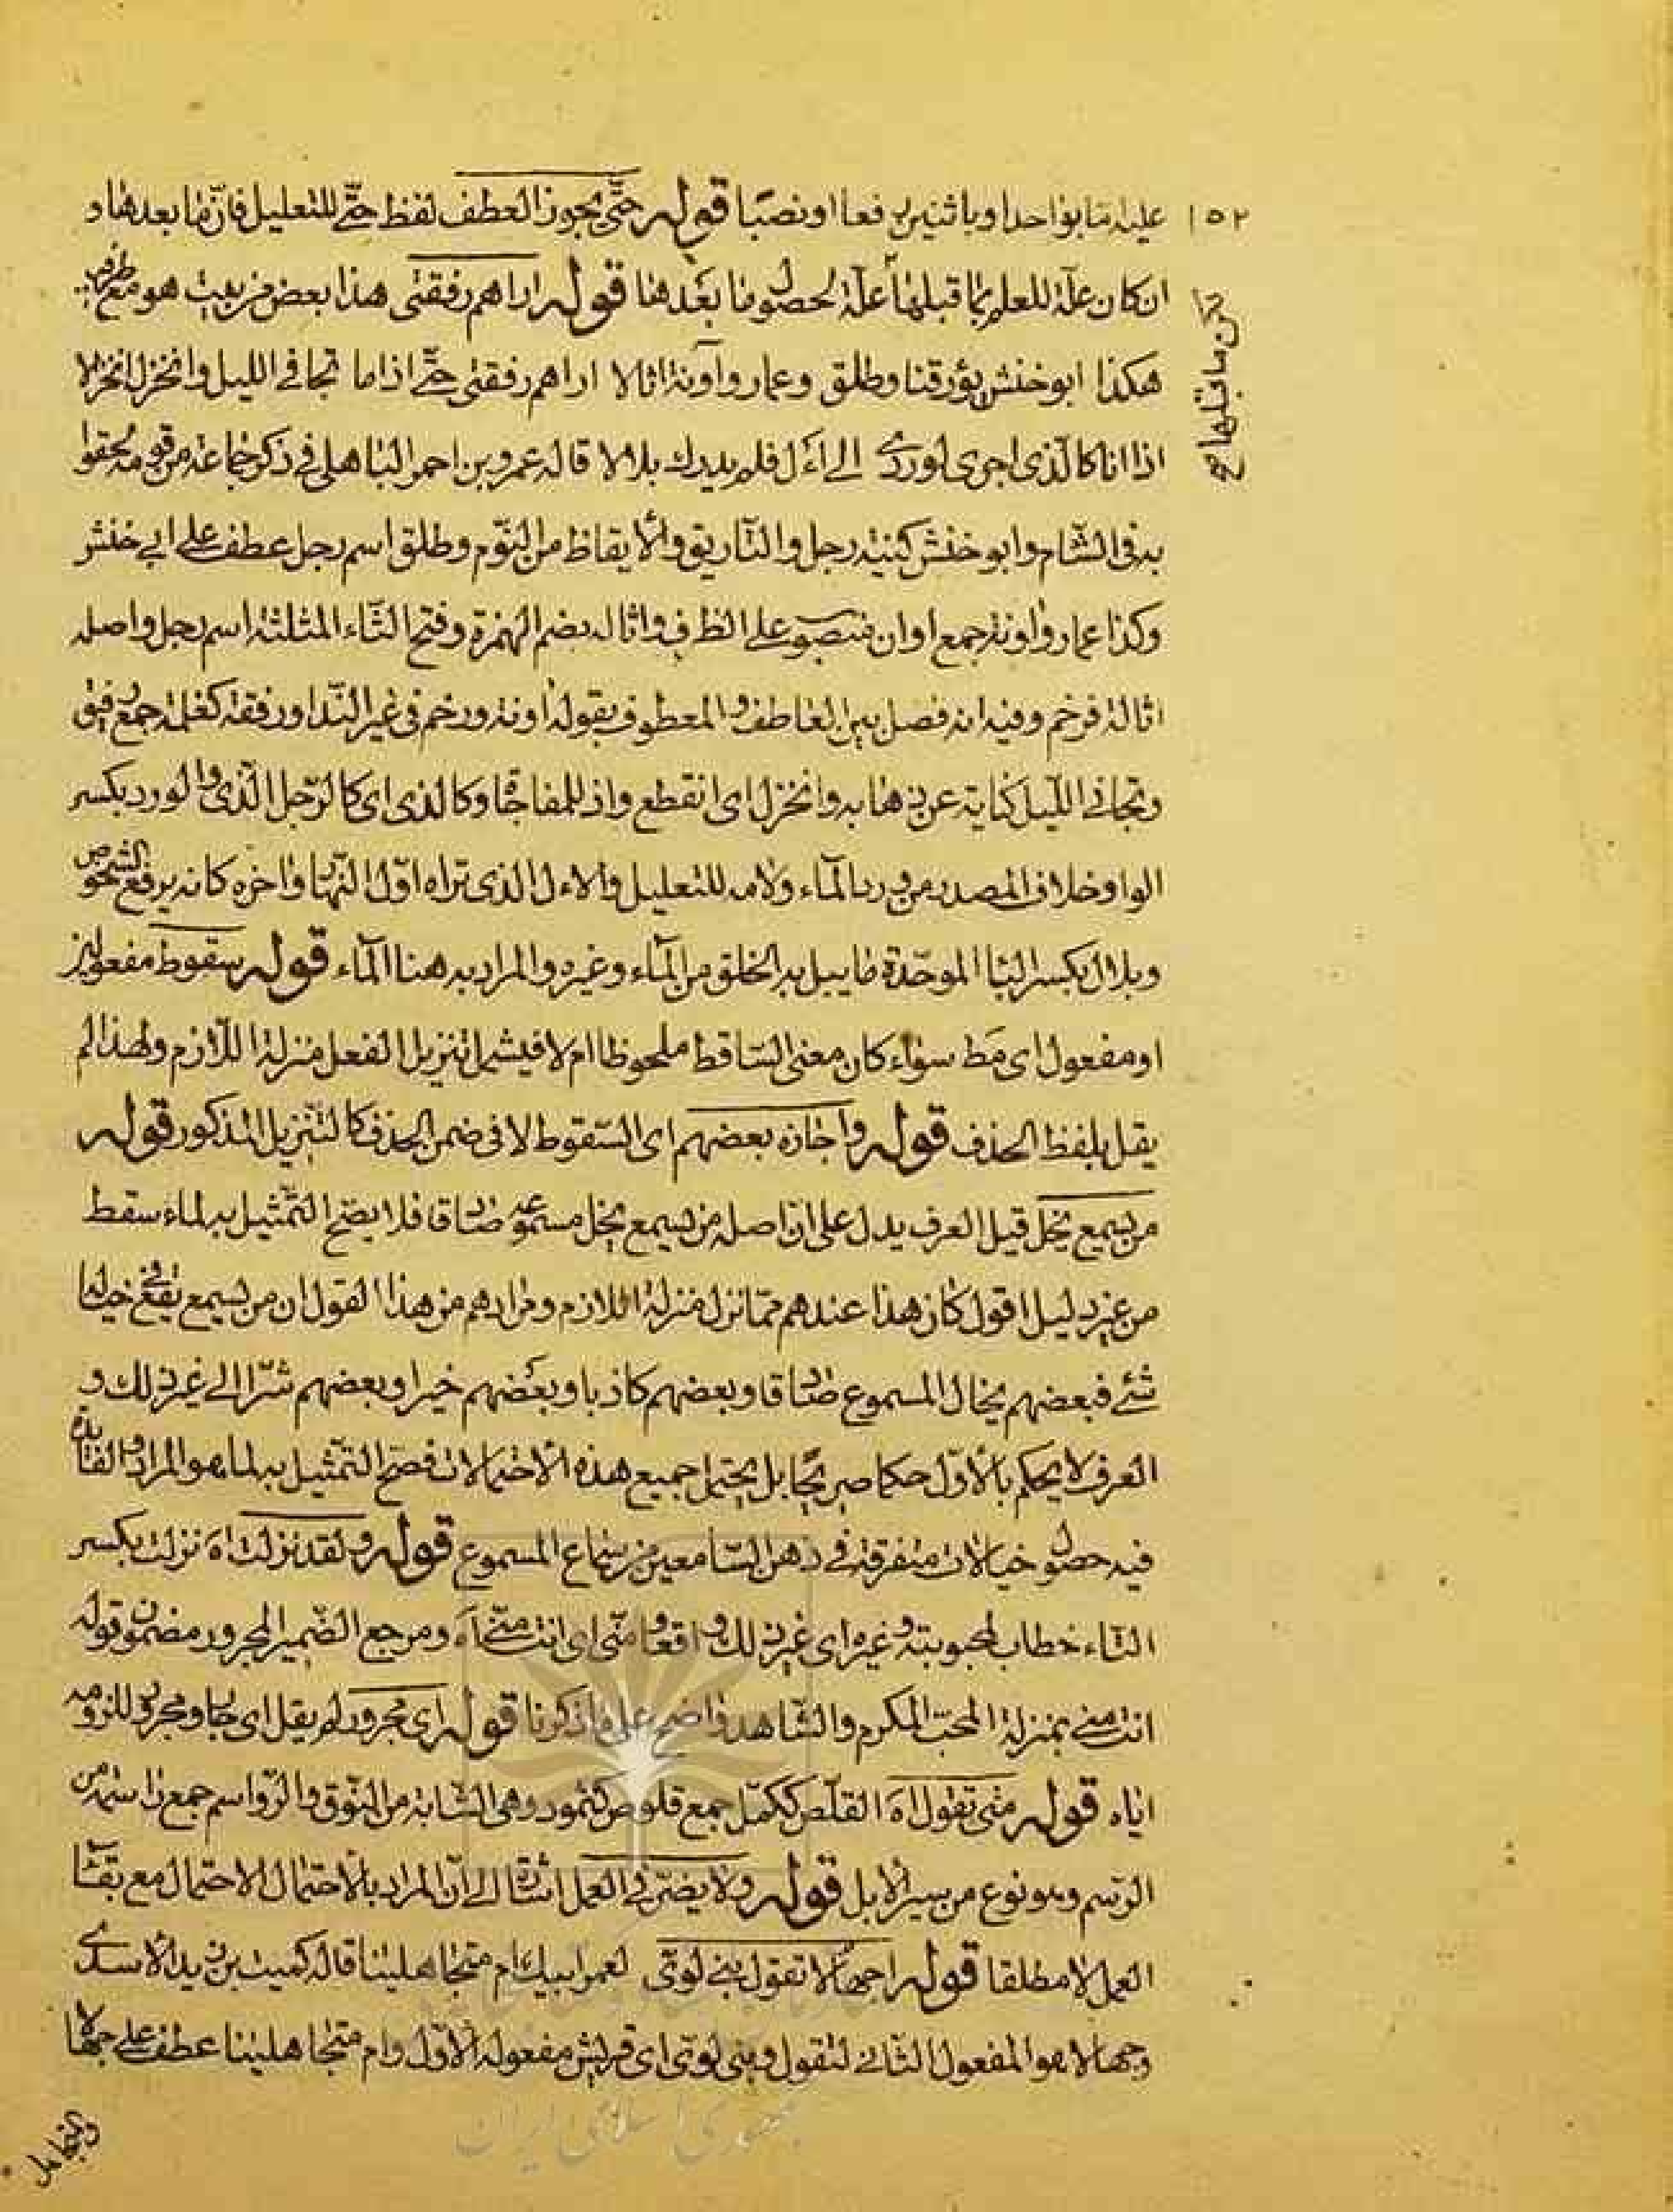 عليه متابوا حدا و باثنين رفعا او نصبا قوله حتى يجوز العطف لفظ حتى للتعليل فان ما بعدها و
ان كان علة للعلم بما قبلها علة لحصول ما بعدها قوله اراهم رفقتى هذا بعض من بيت هو مع
هكذا ابو حنش يؤرقنا وطلق وعمار وآونة اثالا اراهم رفقتى حتى اذا ما تجافى الليل وانخزل انخزالا
اذا انا كالذى اجرى لورد الى اءل فلم يدرك بلالا قاله عمرو بن احمر الباهلى فى ذكر جماعة من قومه لحقوا
به فى الشام وابو حنش كنية رجل والتاريق والايقاظ من النوم وطلق اسم رجل عطف على ابى حنش
وكذا عمار واونة جمع اوان منصوب على الظرف واثاله بضم الهمزة وفتح الثاء المثلثة اسم رجل واصله
اثالة فرخم وفيه انه فصل بين العاطف والمعطوف بقوله اونة ورخم فى غير النداء ورفقة كغلمة جمع رفيق
وتجافى الليل كناية عن ذهابه وانخزل اى انقطع واذ للمفاجاة وكالذى اى كالرجل الذى والورد بكسر
الواو خلاف المصدر من ورد الماء ولامه للتعليل والاءل الذى تراه اول النهار واخره كانه يرفع الشخوص
وبلال بكسر الباء الموحدة ما يبل به الخلق من الماء وغيره والمراد به هنا الماء قوله سقوط مفعولين
او مفعول اى مط سواء كان معنى الساقط ملحوظا ام لا فيشمل تنزيل الفعل منزلة اللازم ولهذا لم
يقل بلفظ الحذف قوله واجازه بعضهم اى السقوط لا فى ضمن الحذف كالتنزيل المذكور قوله
من يسمع يخل قيل العرف يدل على ان اصله من يسمع يخل مسموعه صادقا فلا يصح التمثيل به لماء سقط
من غير دليل اقول كان هذا عندهم مما نزل منزلة اللازم ومرادهم من هذا القول ان من يسمع يقع فى خياله
شئ فبعضهم يخال المسموع صادقا وبعضهم كاذبا وبعضهم خيرا وبعضهم شرا الى غير ذلك و
العرف لا يحكم بالاول حكما صريحا بل يحتمل جميع هذه الاحتمالات فصح التمثيل به لما هو المراد والفائدة
فيه حصول خيالات متفرقة فى ذهن السامعين من سماع المسموع قوله ولقد نزلت اه نزلت بكسر
التاء خطاب لمحبوبته وغيره اى غير ذلك واقعا و منى اى انت منى اه ومرجع الضمير المجرور مضمون قوله
انت منى بمنزلة المحب المكرم والشاهد واضح على ما ذكرنا قوله اى مجرور لم يقل اى جار ومجرور للزومه
اياه قوله متى تقول اه القلص ككمل جمع قلوص كثمود وهى الشابة من النوق والرواسم جمع راسمة من
الرسم وهو نوع من سير الابل قوله ولا يضر فى العمل اشارة الى ان المراد بالاحتمال الاحتمال مع بقاء
العمل لا مطلقا قوله اجهالا تقول بنى لؤى لعمر ابيك ام متجاهلينا قاله كميت بن زيد الاسدى
وجهالا هو المفعول الثانى لتقول وبنى لوى اى قريش مفعوله الاول وام متجاهلينا عطف على جهالا